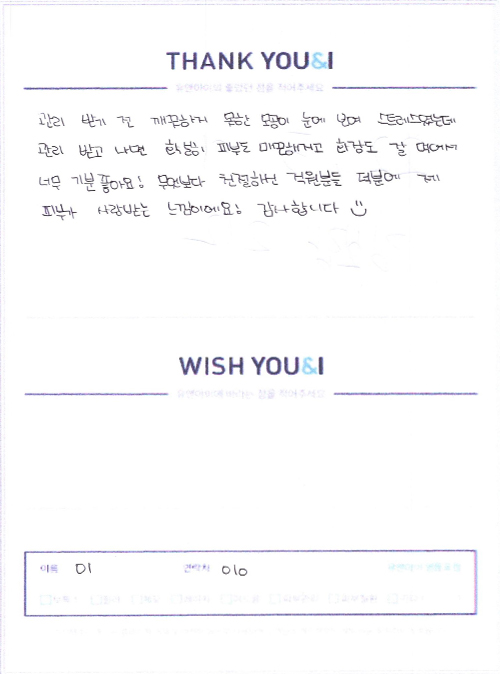 THANK YOU&I
유앤아이의 좋았던 점을 적어주세요
관리 받기 전 깨끗하지 못한 모공이 눈에 보여 스트레스였는데
관리 받고 나면 확실히 피부도 매끈해지고 화장도 잘 먹어서
너무 기분 좋아요! 무엇보다 친절하신 직원분들 덕분에 제
피부가 사랑받는 느낌이에요! 감사합니다
WISH YOU&I
유앤아이에 바라는 점을 적어주세요
이름 연락처 010